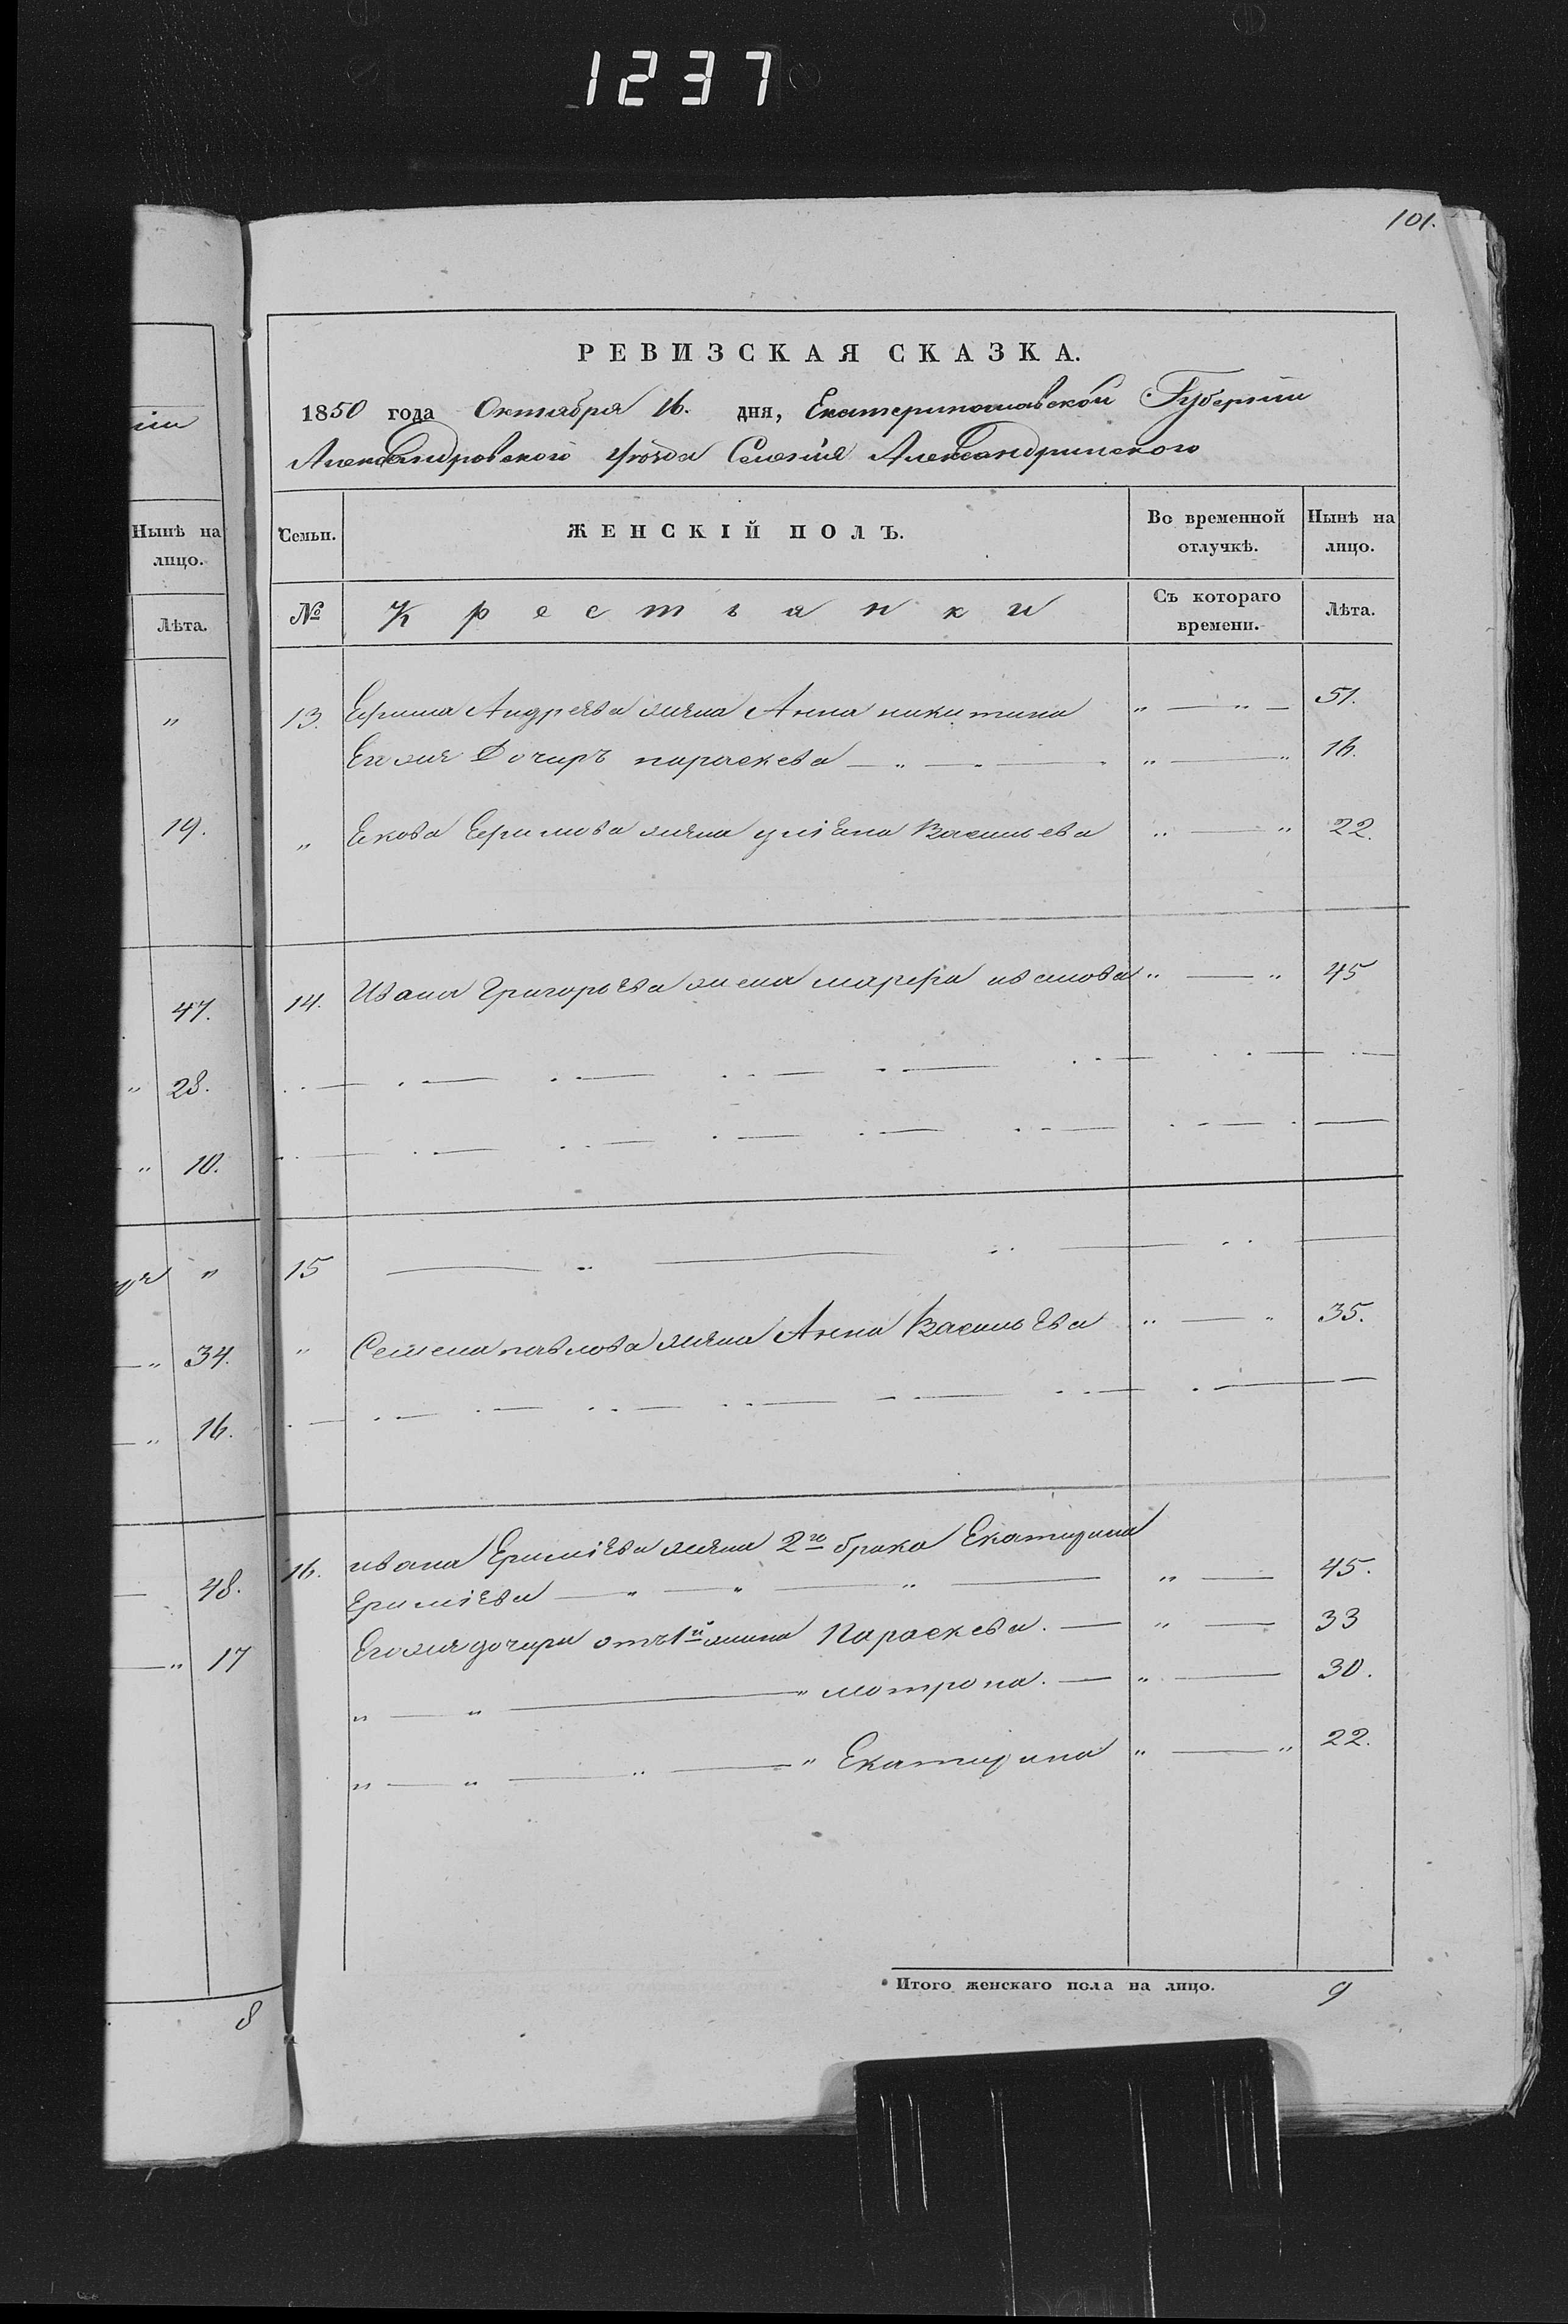 1237
101.
РЕВИЗСКАЯ СКАЗКА.
1850 года Октября 16. дня, Екатеринославской Губернии
Александровского уѣзда Селения Александринского
Нынѣ на лицо.
Семьи.
ЖЕНСКІЙ ПОЛЪ.
Во временной отлучкѣ.
Нынѣ на лицо.
Лѣта.
№
Крестьянки
Съ котораго времени.
Лѣта.
" 13. Ефима Андреева жена Анна никитина " — " — 51.
Его же Дочиръ параскева — " — " — " — " 16.
19. " Екова Ефимова жена улiяна Васильева " — " 22.
47. 14. Ивана Григорьева жена марфа иванова " — " 45
" 28.
" 10.
" 15 — " —
— " 34. " Семена павлова жена Анна Васильева " — " 35.
— " 16.
16. ивана Ефимiева жена 2го брака Екатирина
— 48. Ефимiева — " — " — " — " — 45.
Его же дочири отъ 1й жины Параскева. — " — 33
— " 17 " — " — " мотрона. — " — 30.
" — " — " — " Екатирина " — " 22.
Итого женскаго пола на лицо. 9
8